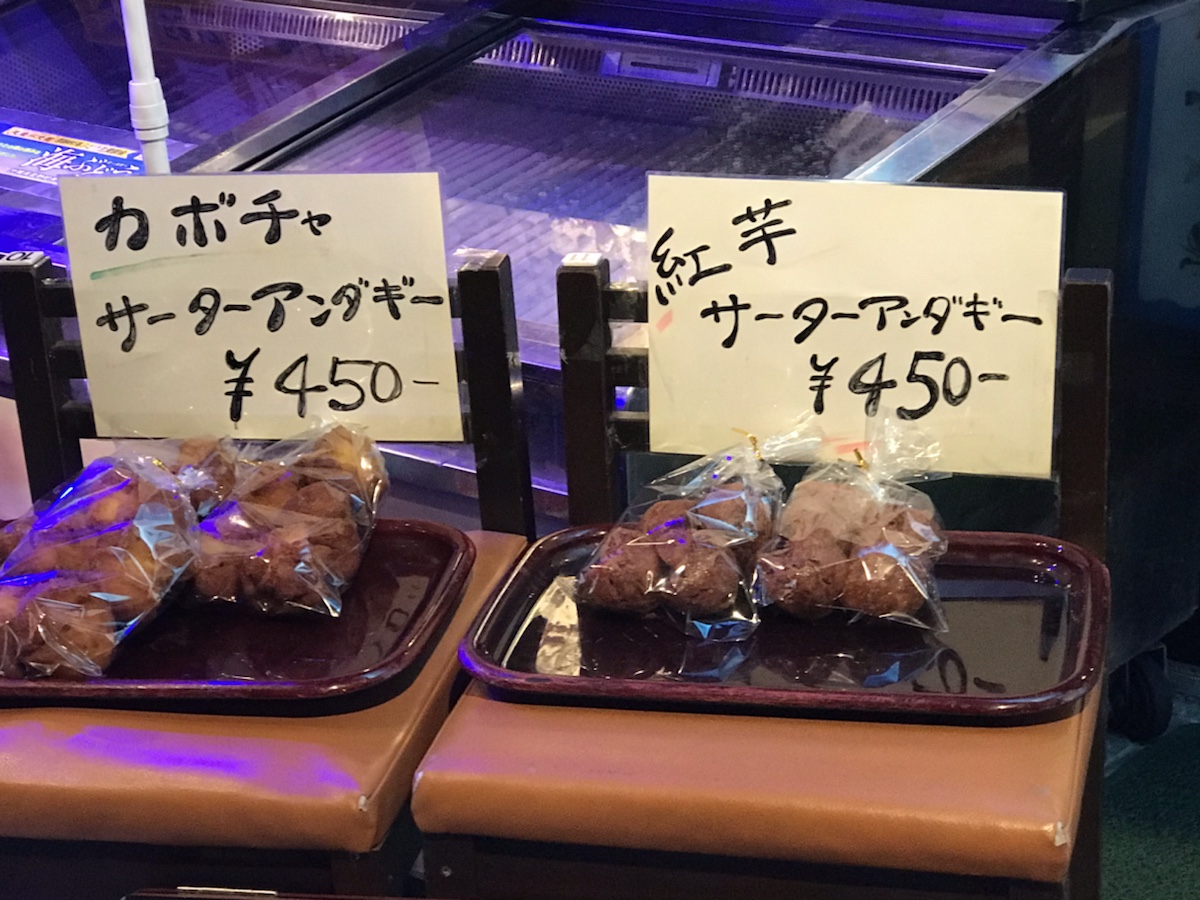 カボチャ
サーターアンダギー
¥450-
紅芋
サーターアンダギー
¥450-